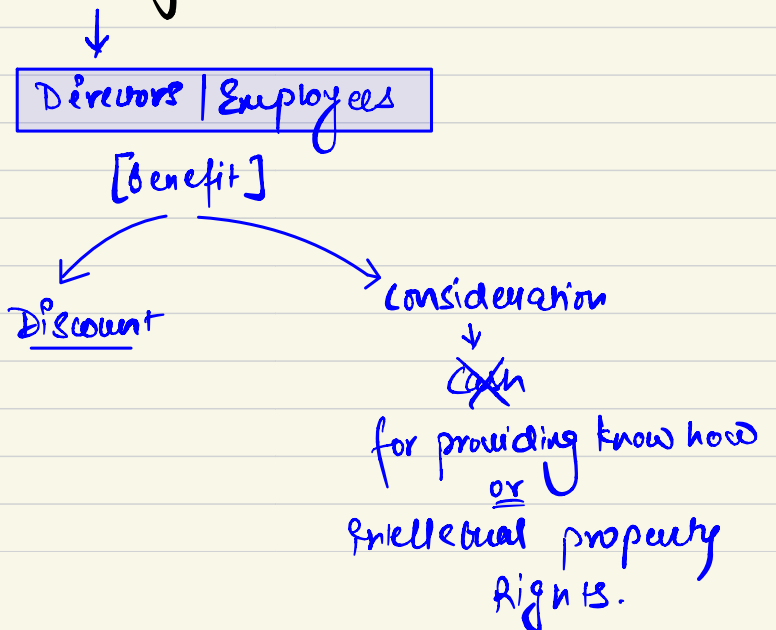 Directors | Employees
[Benefit]
Discount
Consideration
Cash
for providing know how
or
Intellectual property
Rights.